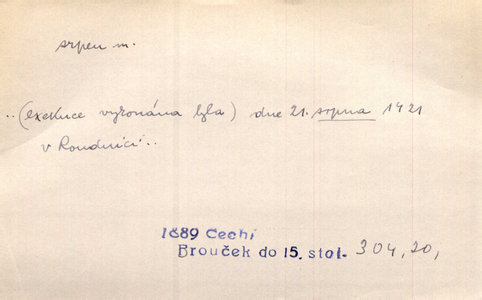 srpen m.
..(exekuce vykonána byla) dne 21. srpna 1421
v Roudnici..
1889 Čech:
Brouček do 15. stol. 304,20,